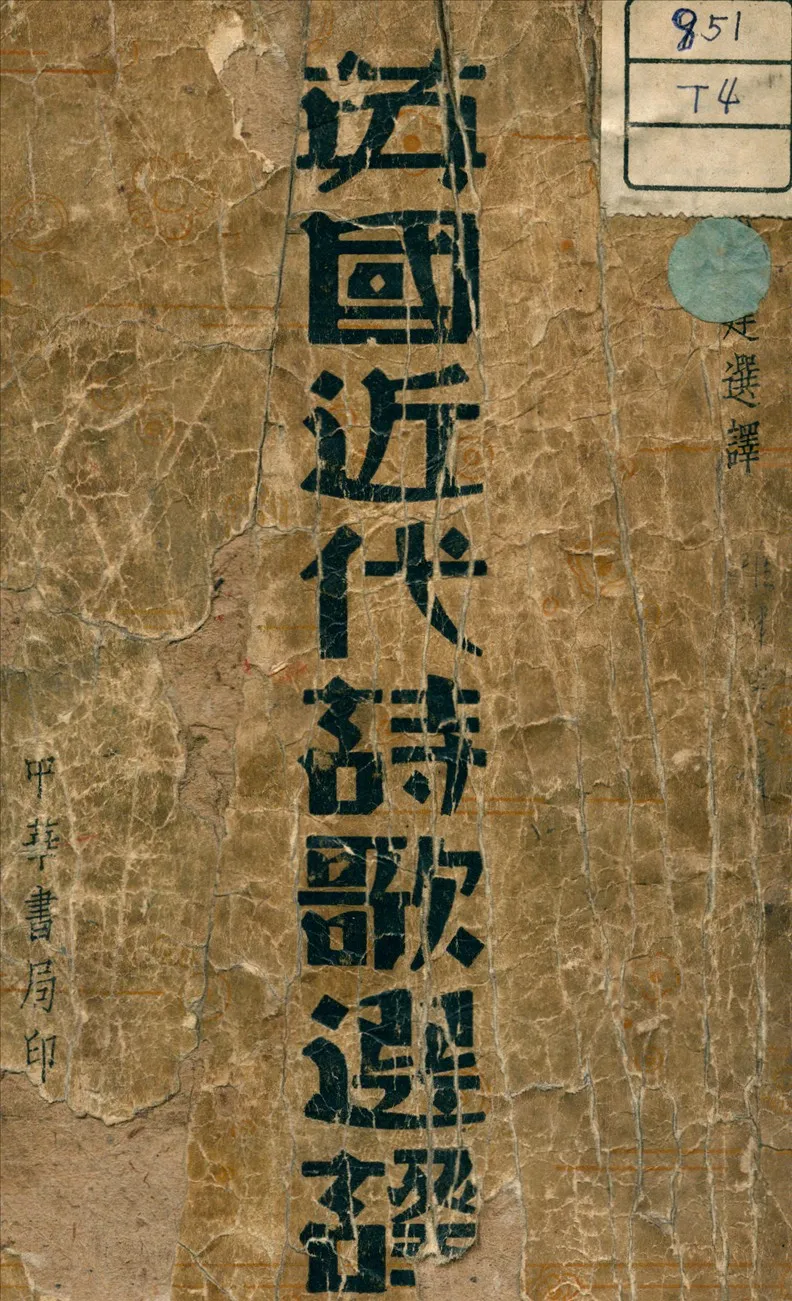 851
T4
選譯
英國近代詩歌選譯
中華書局印